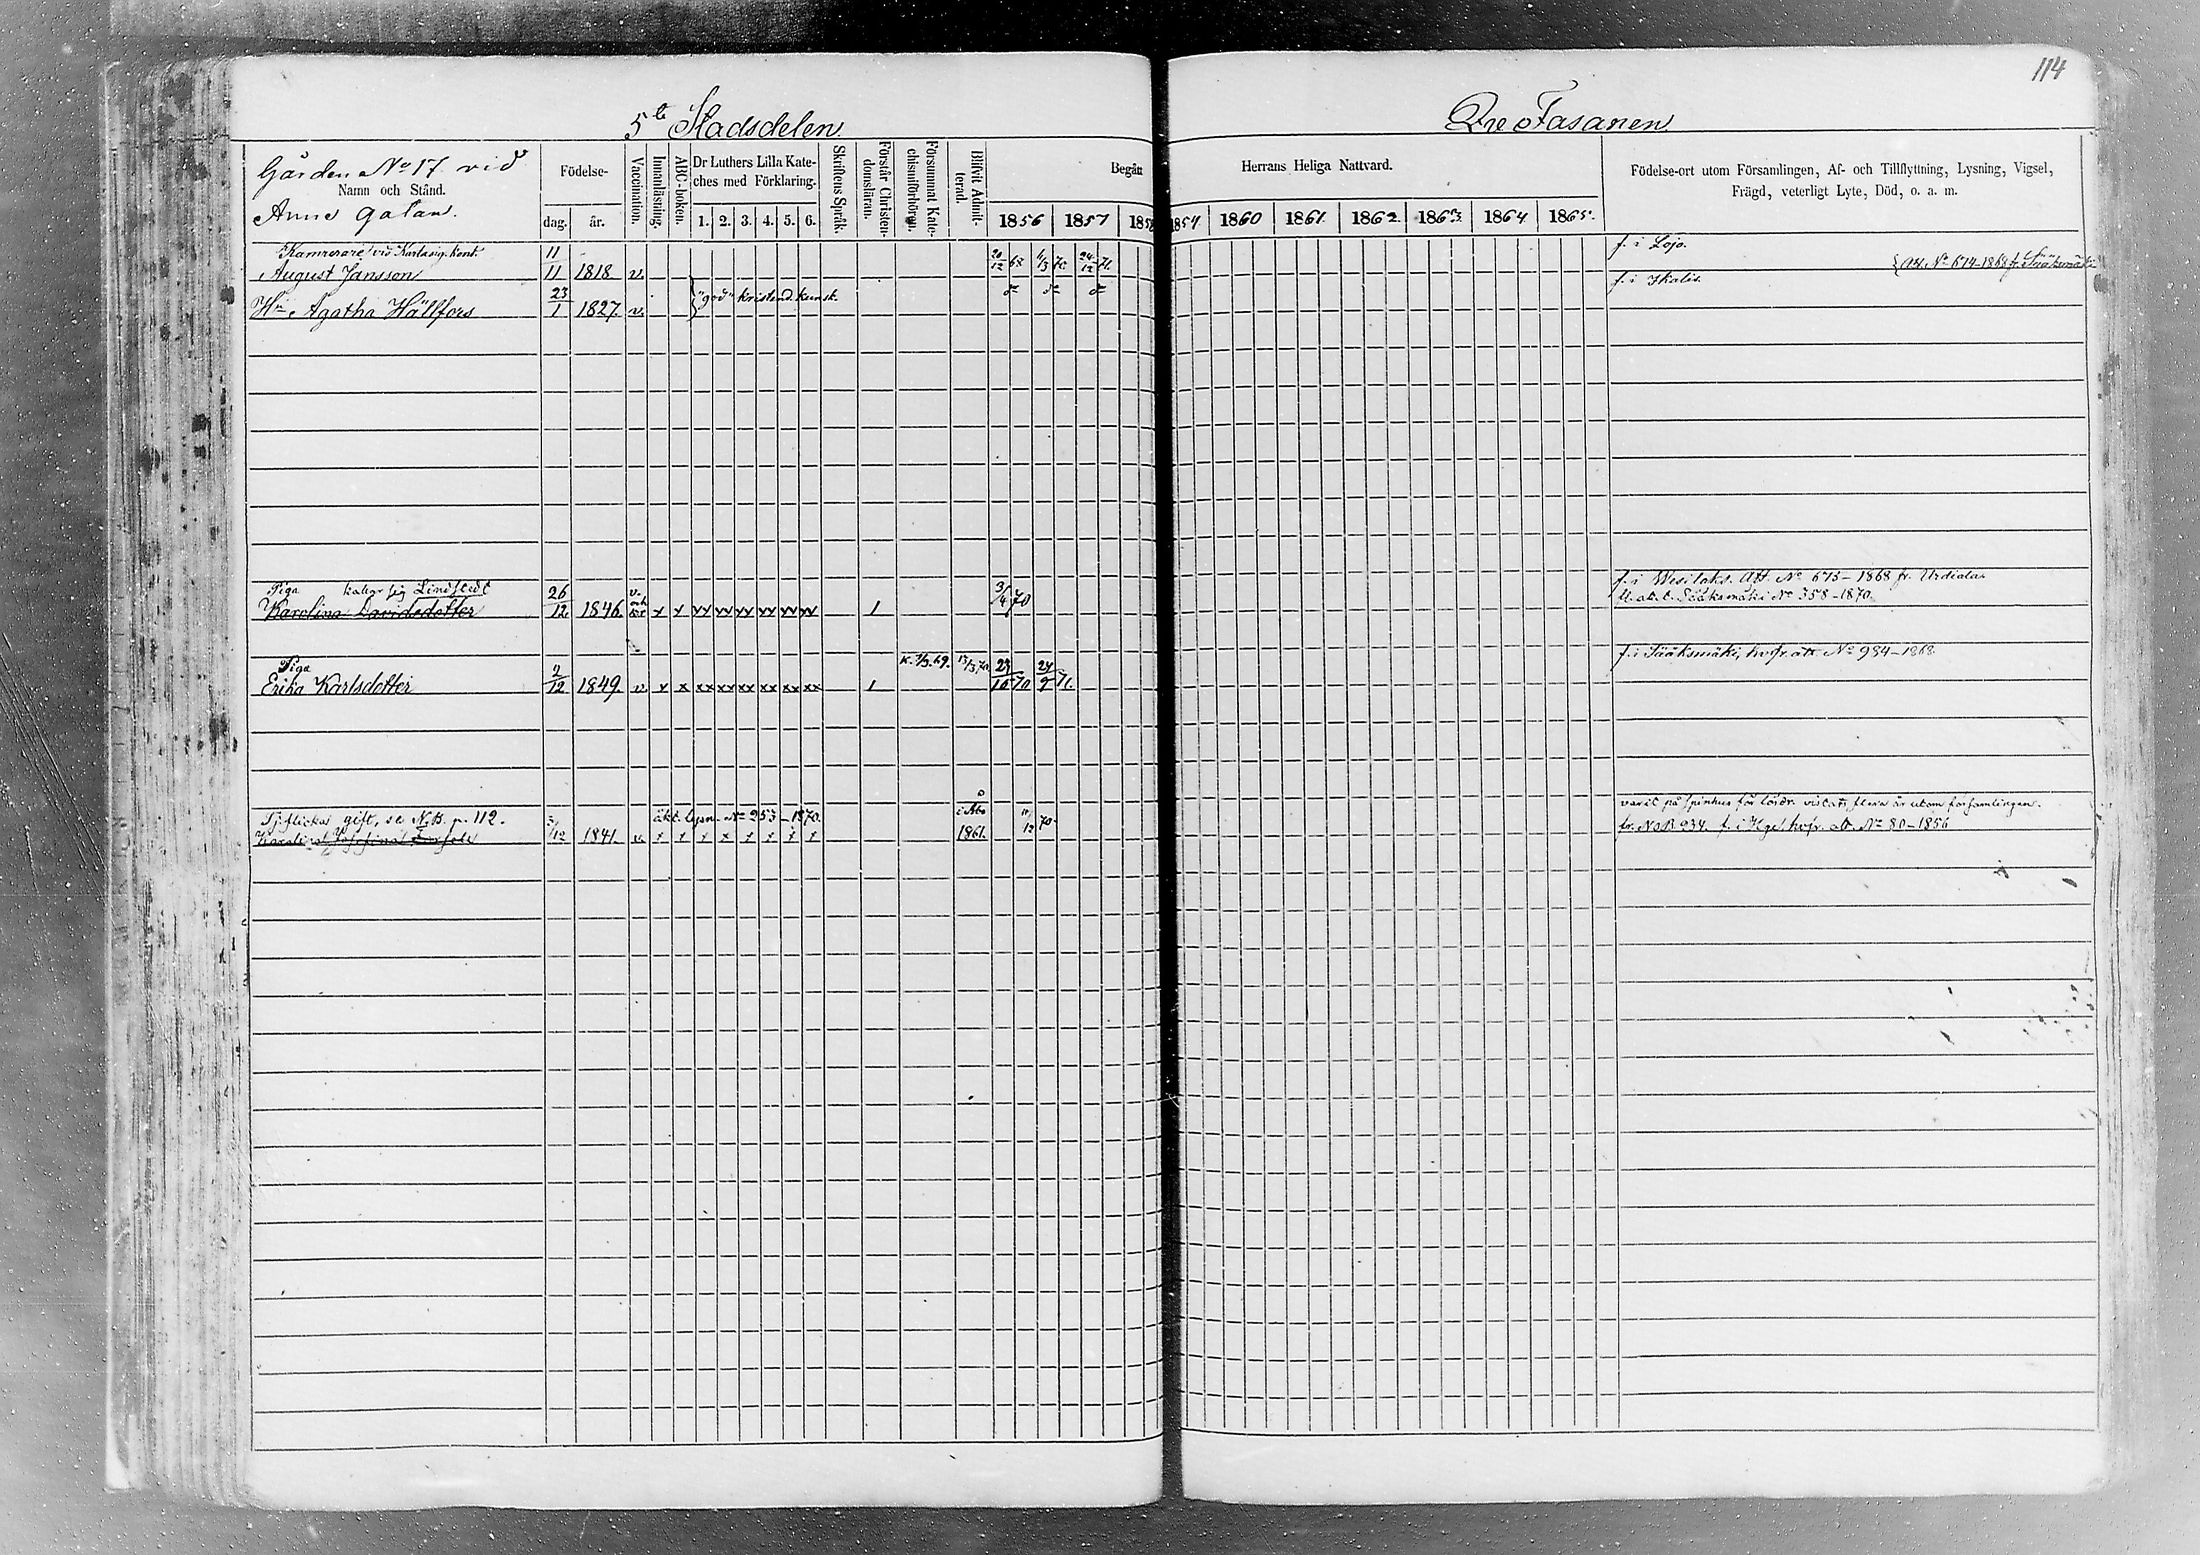 114
5te Stadsdelen
Qre Fasanen
Gården No 17. vid
Namn och Stånd.
Anne gatan.
Födelse-
dag.
år.
Vaccination.
Innanläsning.
ABC-boken.
Dr Luthers Lilla Kate-
ches med Förklaring.
1. 2. 3. 4. 5. 6.
Skriftens Språk.
Förstår Christen-
domsläran.
Försummat Kate-
chismiförhören.
Blifvit Admit-
terad.
Begån
Herrans Heliga Nattvard.
1856 1857 185
1860 1861. 1862. 1863. 1864 1865.
Födelse-ort utom Församlingen, Af- och Tillflyttning, Lysning, Vigsel,
Frägd, veterligt Lyte, Död, o. a. m.
11 20/12 68. 24/12 71. f. i Lojo.
August Jansson 11 1818 v. Att. No 674-1868 fr. Sääksmäki
23 "god" kristend. kunsk. do do do f. i Ikalis.
Hu. Agatha Hällfors 1 1827. v.
Piga kallar sig Lindstedt 26 v. 3/4 70 f. i Wesilaks. Att. No 675-1868 fr. Urdiala
Karolina Davidsdotter 12 1846. x x xx xx xx xx xx xx 1 Sääksmäki No 358-1870.
Piga 2 K. 13/3 70 23 24 f. i Sääksmäki, hvfr. att No 984-1868
Erika Karlsdotter 12 1849. v. x x xx xx xx xx xx xx 1 10 70 9 71.
gift, se N.B. p. 112. äkt. lysn. No 253-1870. i Åbo 11/12 70. varit på spinhus för lösdr. vistats flera år utom församlingen.
Karolina Josefina 12 1841. v. x x x x x x x x 1861. f. i hvfr. att No 80-1856